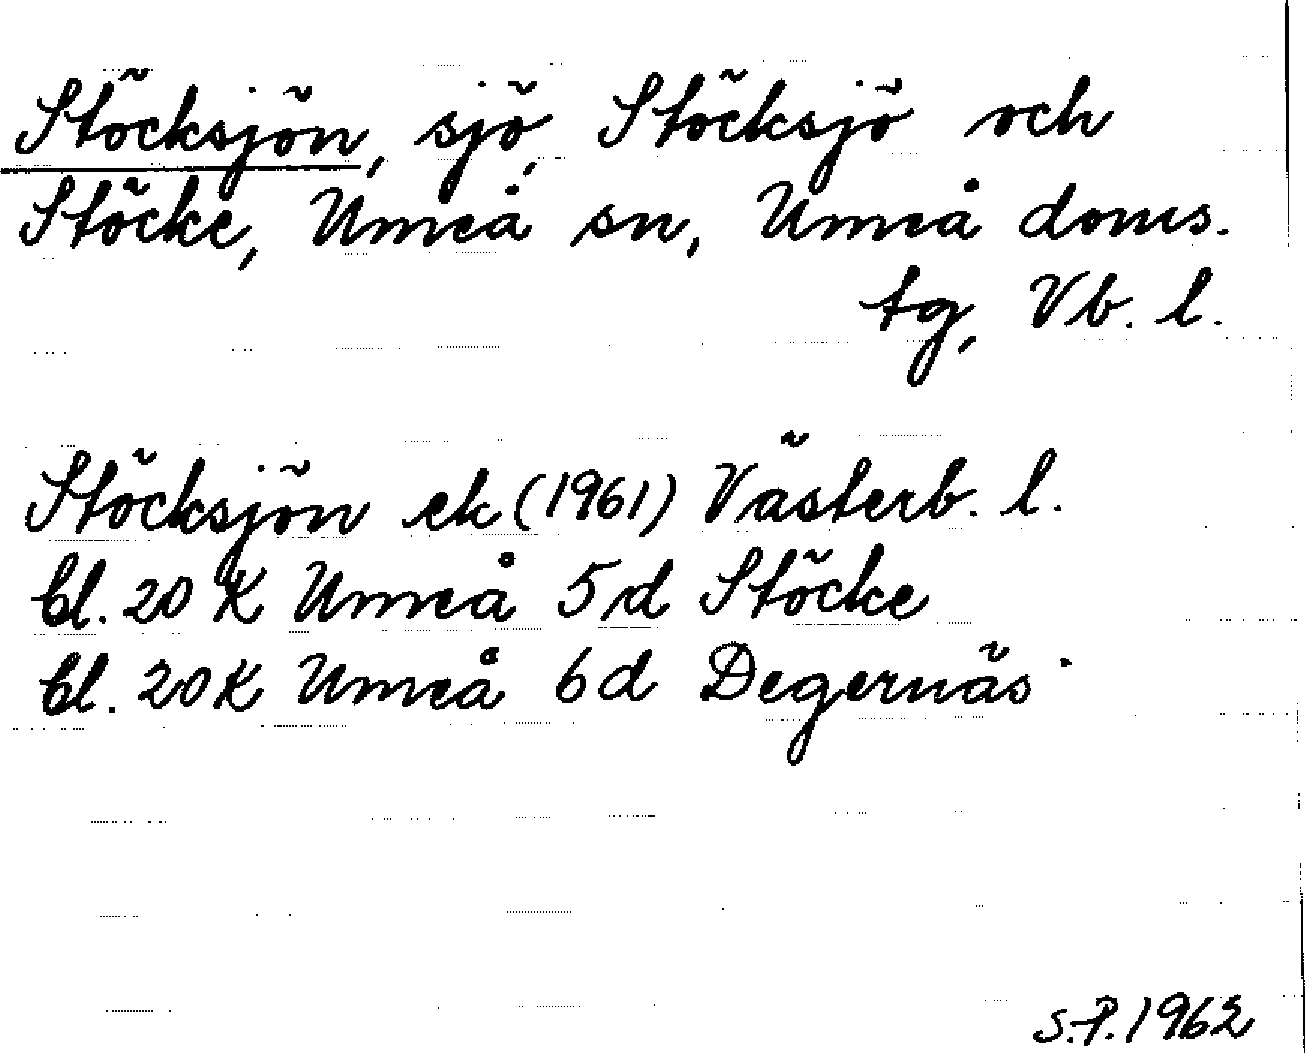 Stöcksjön, sjö, Stöcksjö och
Stöcke, Umeå sn, Umeå doms.
tg, Vb. l.
Stöcksjön ek (1961) Västerb. l.
bl. 20 K Umeå 5 d Stöcke
bl. 20 K Umeå 6 d Degernäs
S.P. 1962